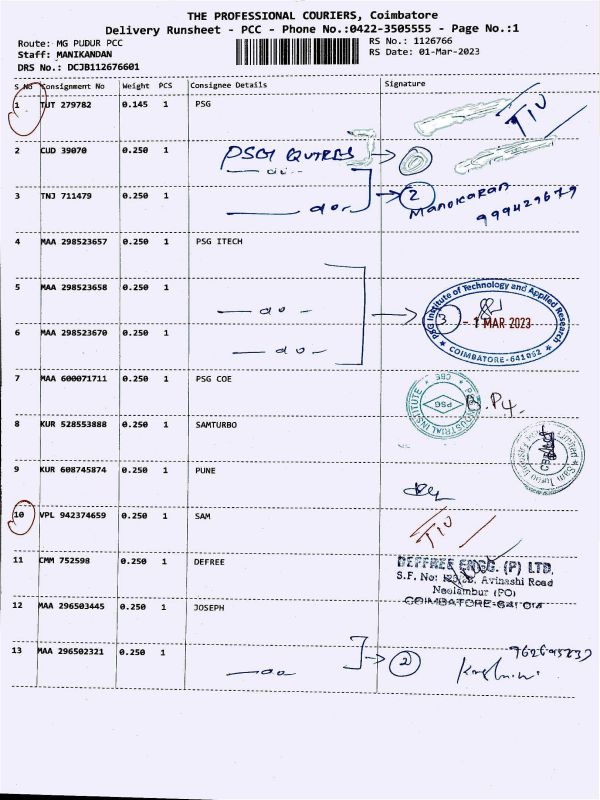 THE PROFESSIONAL COURIERS, Coimbatore
Delivery Runsheet - PCC - Phone No.:0422-3505555 - Page No.:1
Route: MG PUDUR PCC
RS No.: 1126766
Staff: MANIKANDAN
RS Date: 01-Mar-2023
DRS No.: DCJB112676601
S.No Consignment No Weight PCS Consignee Details Signature
1 TUT 279782 0.145 1 PSG
2 CUD 39070 0.250 1 PSG
do
3 TNJ 711479 0.250 1 do 2 Manokaran
4 MAA 298523657 0.250 1 PSG ITECH
5 MAA 298523658 0.250 1 do
PSG Institute of Technology and Applied Research
3 - 1 MAR 2023
COIMBATORE-641062
6 MAA 298523670 0.250 1 do
7 MAA 600071711 0.250 1 PSG COE
PSG INDUSTRIAL INSTITUTE
PSG
CBE
8 KUR 528553888 0.250 1 SAMTURBO
Sam Turbo Industry Private Limited
9 KUR 608745874 0.250 1 PUNE
10 VPL 942374659 0.250 1 SAM
11 CMM 752598 0.250 1 DEFREE
DEFFREE ENGG. (P) LTD,
Avinashi Road
Neelambur (PO)
12 MAA 296503445 0.250 1 JOSEPH
13 MAA 296502321 0.250 1 do 2